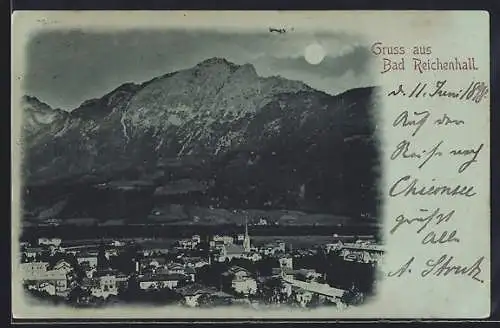 Gruss aus
Bad Reichenhall.
d. 11. Juni 1898.
Auf der
Reise nach
Chiemsee
grüßt
alle
A. Strack